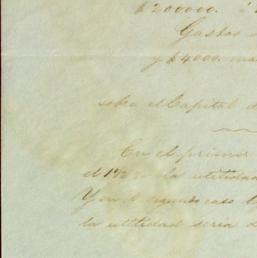 $200000. á
Gastos
y $4000. ma
sobre el Capital d
En el primer
el 1½ % la utilidad
Y en el segundo caso
la utilidad seria d